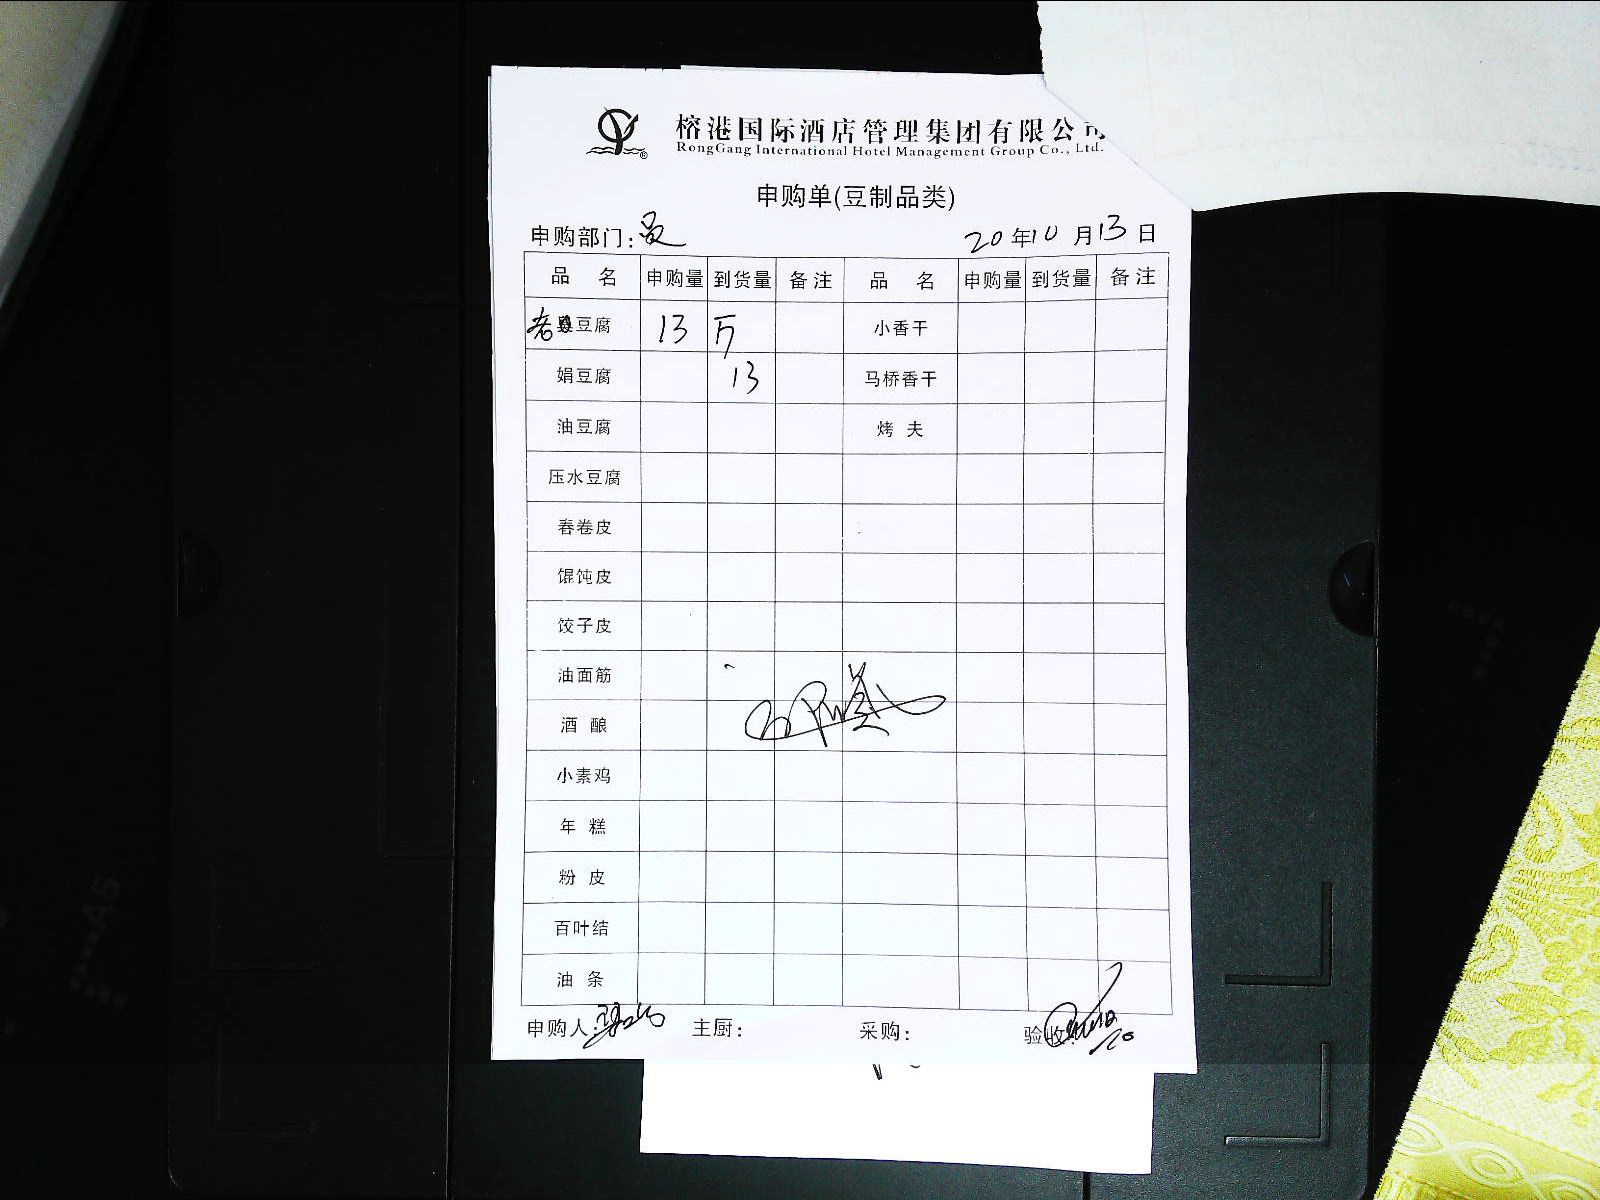 榕港国际酒店管理集团有限公司
RongGang International Hotel Management Group Co., Ltd.
申购单(豆制品类)
申购部门: 20年10月13日
品 名 申购量 到货量 备注 品 名 申购量 到货量 备注
老豆腐 13 斤 小香干
娟豆腐 13 马桥香干
油豆腐 烤 夫
压水豆腐
春卷皮
馄饨皮
饺子皮
油面筋
酒 酿
小素鸡
年 糕
粉 皮
百叶结
油 条
申购人: 主厨: 采购: 验收: